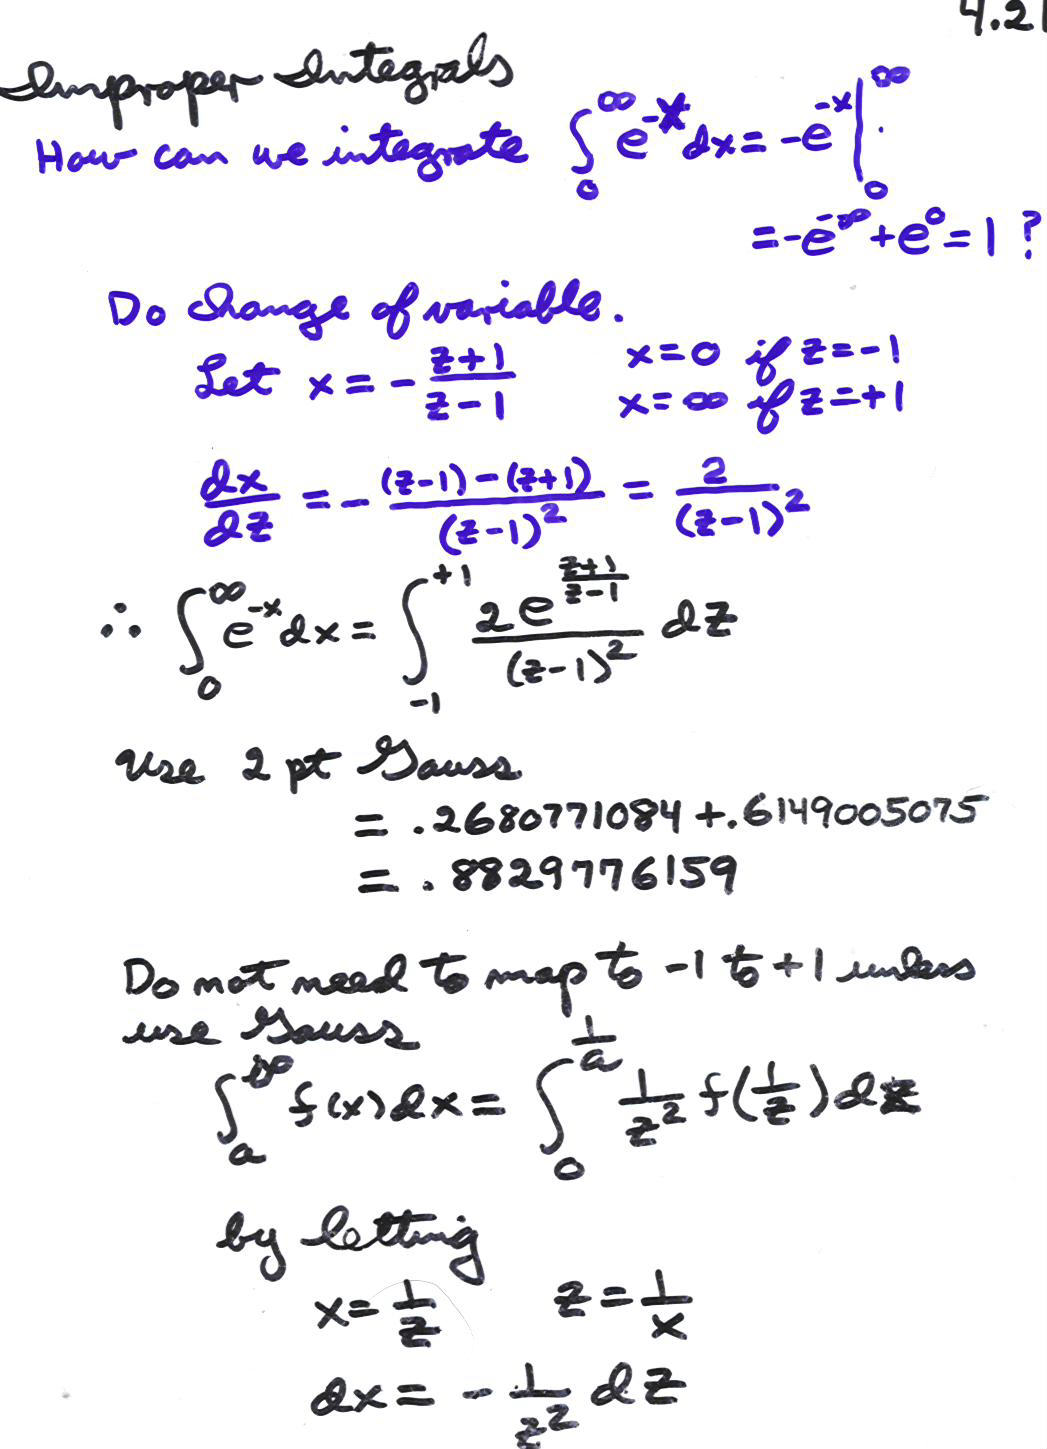 4.21
Improper Integrals
How can we integrate ∫₀^∞ e^{-x} dx = -e^{-x} |₀^∞
= -e^{-∞} + e^0 = 1 ?
Do change of variable.
Let x = - (z+1)/(z-1)    x = 0 if z = -1
x = ∞ if z = +1
dx/dz = - ((z-1) - (z+1))/(z-1)^2 = 2/(z-1)^2
∴ ∫₀^∞ e^{-x} dx = ∫_{-1}^{+1} 2e^{(z+1)/(z-1)}/(z-1)^2 dz
Use 2 pt Gauss
= .2680771084 + .6149005075
= .8829776159
Do not need to map to -1 to +1 unless
use Gauss
∫_a^∞ f(x) dx = ∫_0^{1/a} 1/z^2 f(1/z) dz
by letting
x = 1/z    z = 1/x
dx = - 1/z^2 dz